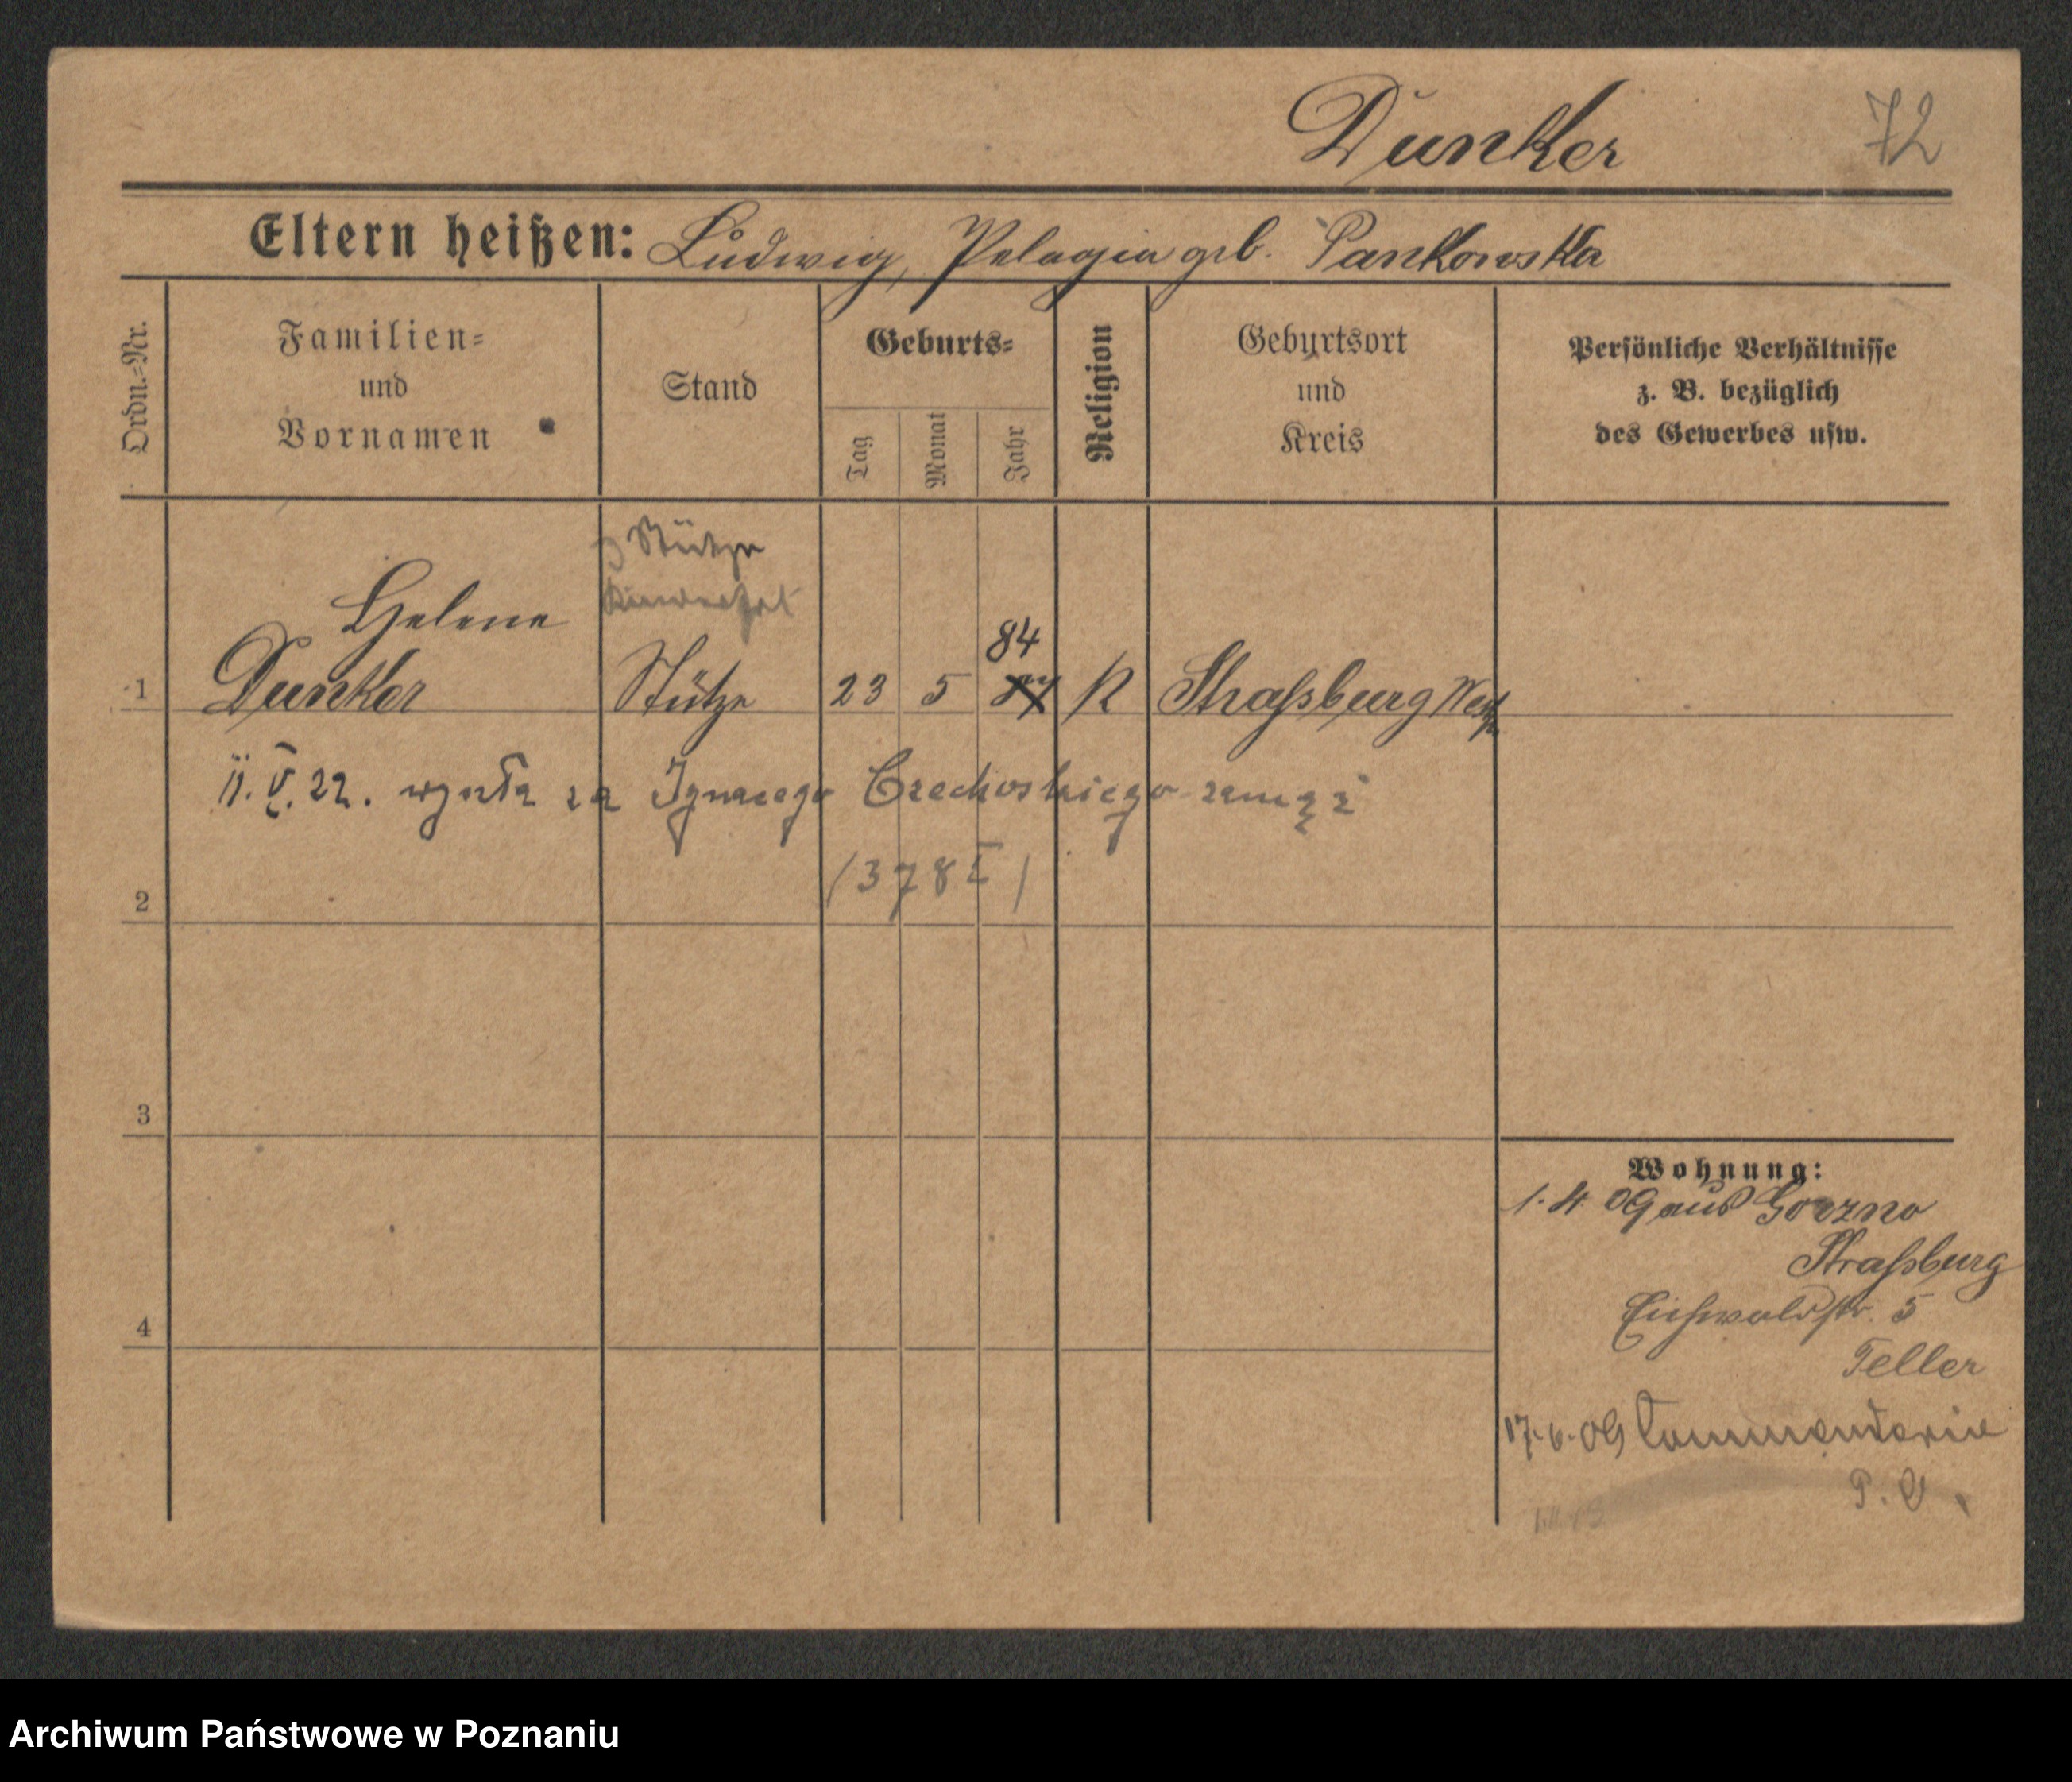 Dunker 72
Eltern heißen: Ludwig, Pelagia geb. Pankowska
Ordn.=Nr.
Familien=
und
Vornamen
Stand
Geburts=
Tag
Monat
Jahr
Religion
Geburtsort
und
Kreis
Persönliche Verhältnisse
z. B. bezüglich
des Gewerbes usw.
Stütze
Helene
84
1 Dunker Stütze 23 5 R Straßburg Westp
11. V. 22. wyszła za Ignacego Czechoskiego zamąż
(378 I)
2
3
4
Wohnung:
1. 4 09 aus Gorzno
Straßburg
Eichwaldstr. 5
Teller
17. 6. 09 Commenderie
P. O.
Archiwum Państwowe w Poznaniu